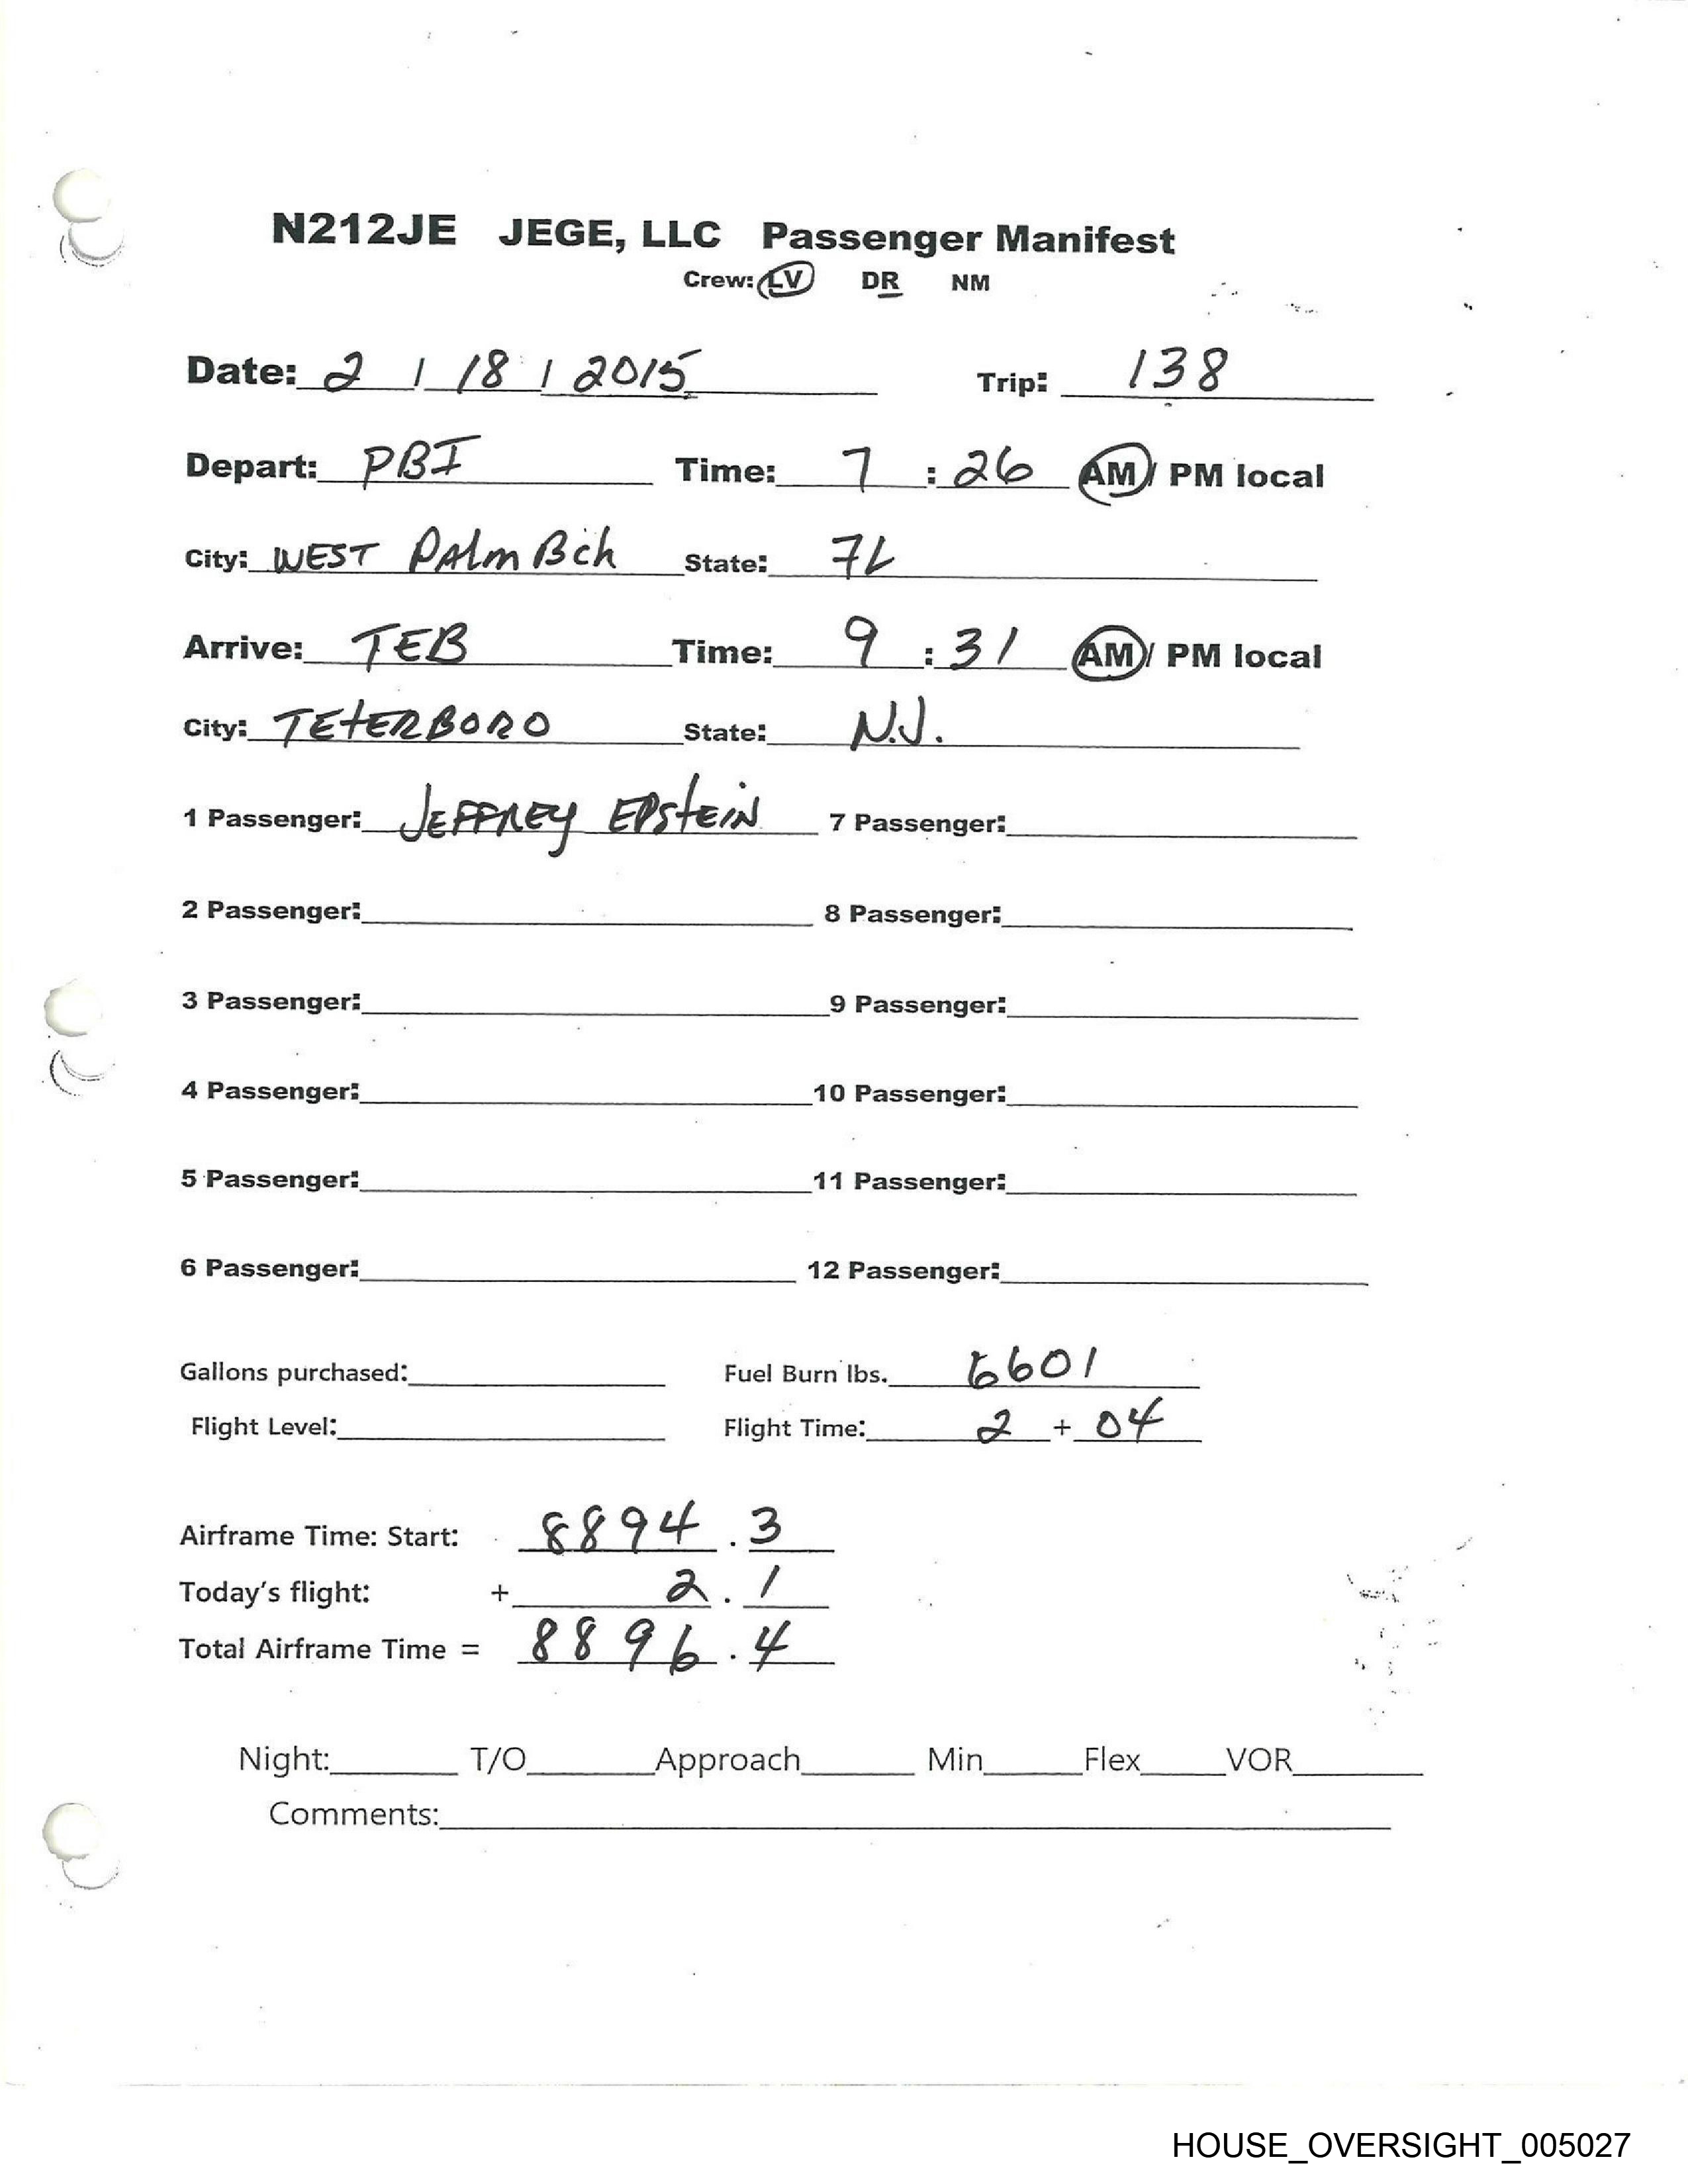 N212JE JEGE, LLC Passenger Manifest
Crew: LV DR NM
Date: 2 / 18 / 2015 Trip: 138
Depart: PBI Time: 7 : 26 AM / PM local
City: WEST PALM BCh State: FL
Arrive: TEB Time: 9 : 31 AM / PM local
City: TETERBORO State: N.J.
1 Passenger: JEFFREY EPSTEIN 7 Passenger:
2 Passenger: 8 Passenger:
3 Passenger: 9 Passenger:
4 Passenger: 10 Passenger:
5 Passenger: 11 Passenger:
6 Passenger: 12 Passenger:
Gallons purchased: Fuel Burn lbs. 6601
Flight Level: Flight Time: 2 + 04
Airframe Time: Start: 8894 . 3
Today's flight: + 2 . 1
Total Airframe Time = 8896 . 4
Night: T/O Approach Min Flex VOR
Comments:
HOUSE_OVERSIGHT_005027